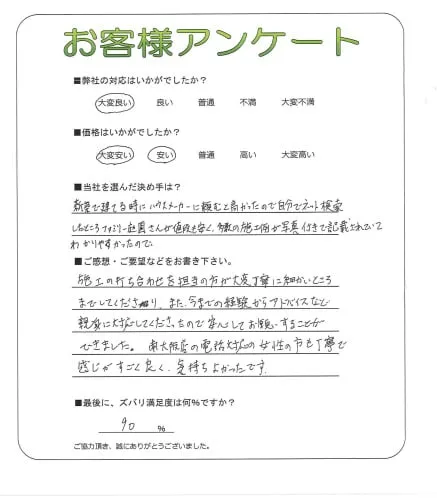 お客様アンケート
■弊社の対応はいかがでしたか?
大変良い 良い 普通 不満 大変不満
■価格はいかがでしたか?
大変安い 安い 普通 高い 大変高い
■当社を選んだ決め手は?
新築で建てる時にハウスメーカーに頼むと高かったので自分でネット検索
したところファミリー庭園さんが値段も安く、多数の施工例が写真付きで記載されていて
わかりやすかったので。
■ご感想・ご要望などをお書き下さい。
施工の打ち合わせを担当の方が大変丁寧に細かいところ
までしてくださり、また、今までの経験からアドバイスなど
親身に対応してくださったので安心してお願いすることが
できました。南大阪店の電話対応の女性の方も丁寧で
感じがすごく良く、気持ちよかったです。
■最後に、ズバリ満足度は何%ですか?
90 %
ご協力頂き、誠にありがとうございました。